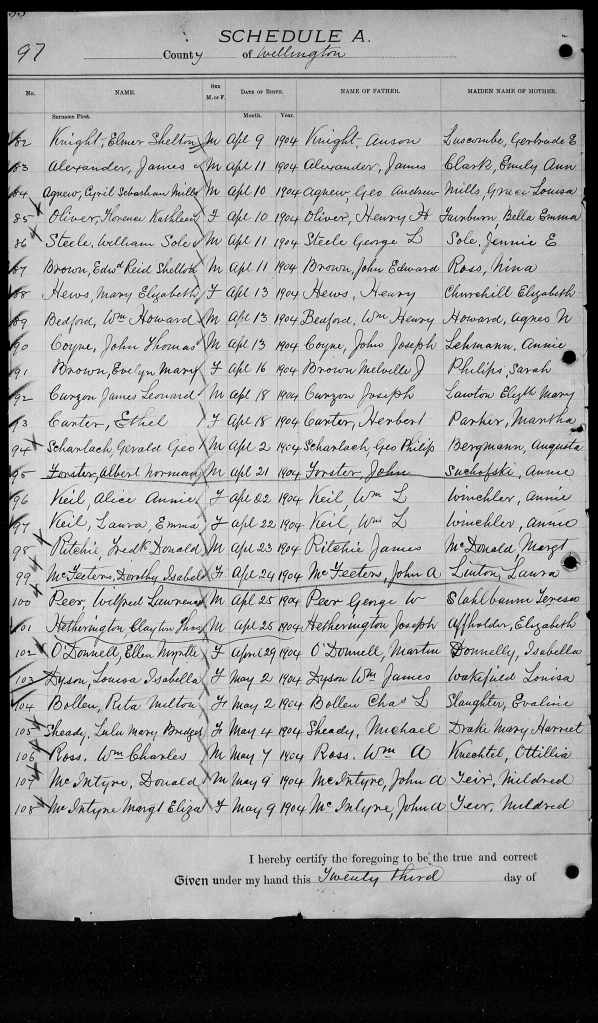 97
SCHEDULE A.
County of Wellington
No. NAME. Sex M. or F. DATE OF BIRTH. NAME OF FATHER. MAIDEN NAME OF MOTHER.
Surname First. Month. Year.
82 Knight, Elmer Shelton M Apl 9 1904 Knight, Anson Luscombe, Gertrude E
83 Alexander, James M Apl 11 1904 Alexander, James Clark, Emily Ann
84 Agnew, Cyril Sebastian Mills M Apl 10 1904 Agnew, Geo Andrew Mills, Grace Louisa
85 Oliver, Florence Kathleen F Apl 10 1904 Oliver, Henry H Fairburn, Bella Emma
86 Steele, William Sole M Apl 11 1904 Steele George L Sole, Jennie E
87 Brown, Edwd Reid Shelton M Apl 11 1904 Brown, John Edward Ross, Nina
88 Hews, Mary Elizabeth F Apl 13 1904 Hews, Henry Churchill Elizabeth
89 Bedford, Wm Howard M Apl 13 1904 Bedford, Wm Henry Howard, Agnes N
90 Coyne, John Thomas M Apl 13 1904 Coyne, John Joseph Lehmann, Annie
91 Brown, Evelyn Mary F Apl 16 1904 Brown Melville J Philips, Sarah
92 Curzon James Leonard M Apl 18 1904 Curzon Joseph Lawton Elizth Mary
93 Carter, Ethel F Apl 18 1904 Carter, Herbert Parker, Martha
94 Scharlach, Gerald Geo M Apl 2 1904 Scharlach, Geo Philip Bergmann, Augusta
95 Forster, Albert Norman M Apl 21 1904 Forster, John Suchofski, Annie
96 Keil, Alice Annie F Apl 22 1904 Keil, Wm L Winchler, Annie
97 Keil, Laura Emma F Apl 22 1904 Keil, Wm L Winchler, Annie
98 Ritchie Fredk Donald M Apl 23 1904 Ritchie James McDonald, Margt
99 McFeeters, Dorothy Isabel F Apl 24 1904 McFeeters, John A Linton, Laura
100 Peer, Wilfred Lawrence M Apl 25 1904 Peer George W Stahlbaum Teresa
101 Hetherington Clayton Thos M Apl 25 1904 Hetherington Joseph Affholder, Elizabeth
102 O'Donnell, Ellen Myrtle F April 29 1904 O'Donnell, Martin Donnelly, Isabella
103 Dyson, Louisa Isabella F May 2 1904 Dyson Wm James Wakefield Louisa
104 Bollen, Rita Milton F May 2 1904 Bollen Chas L Slaughter, Evaline
105 Sheady, Lulu Mary Bridget F May 4 1904 Sheady, Michael Drake Mary Harriet
106 Ross, Wm Charles M May 7 1904 Ross, Wm A Knechtel, Ottillia
107 McIntyre, Donald M May 9 1904 McIntyre, John A Teir, Mildred
108 McIntyre Margt Eliza F May 9 1904 McIntyre, John A Teir, Mildred
I hereby certify the foregoing to be the true and correct
Given under my hand this Twenty third day of